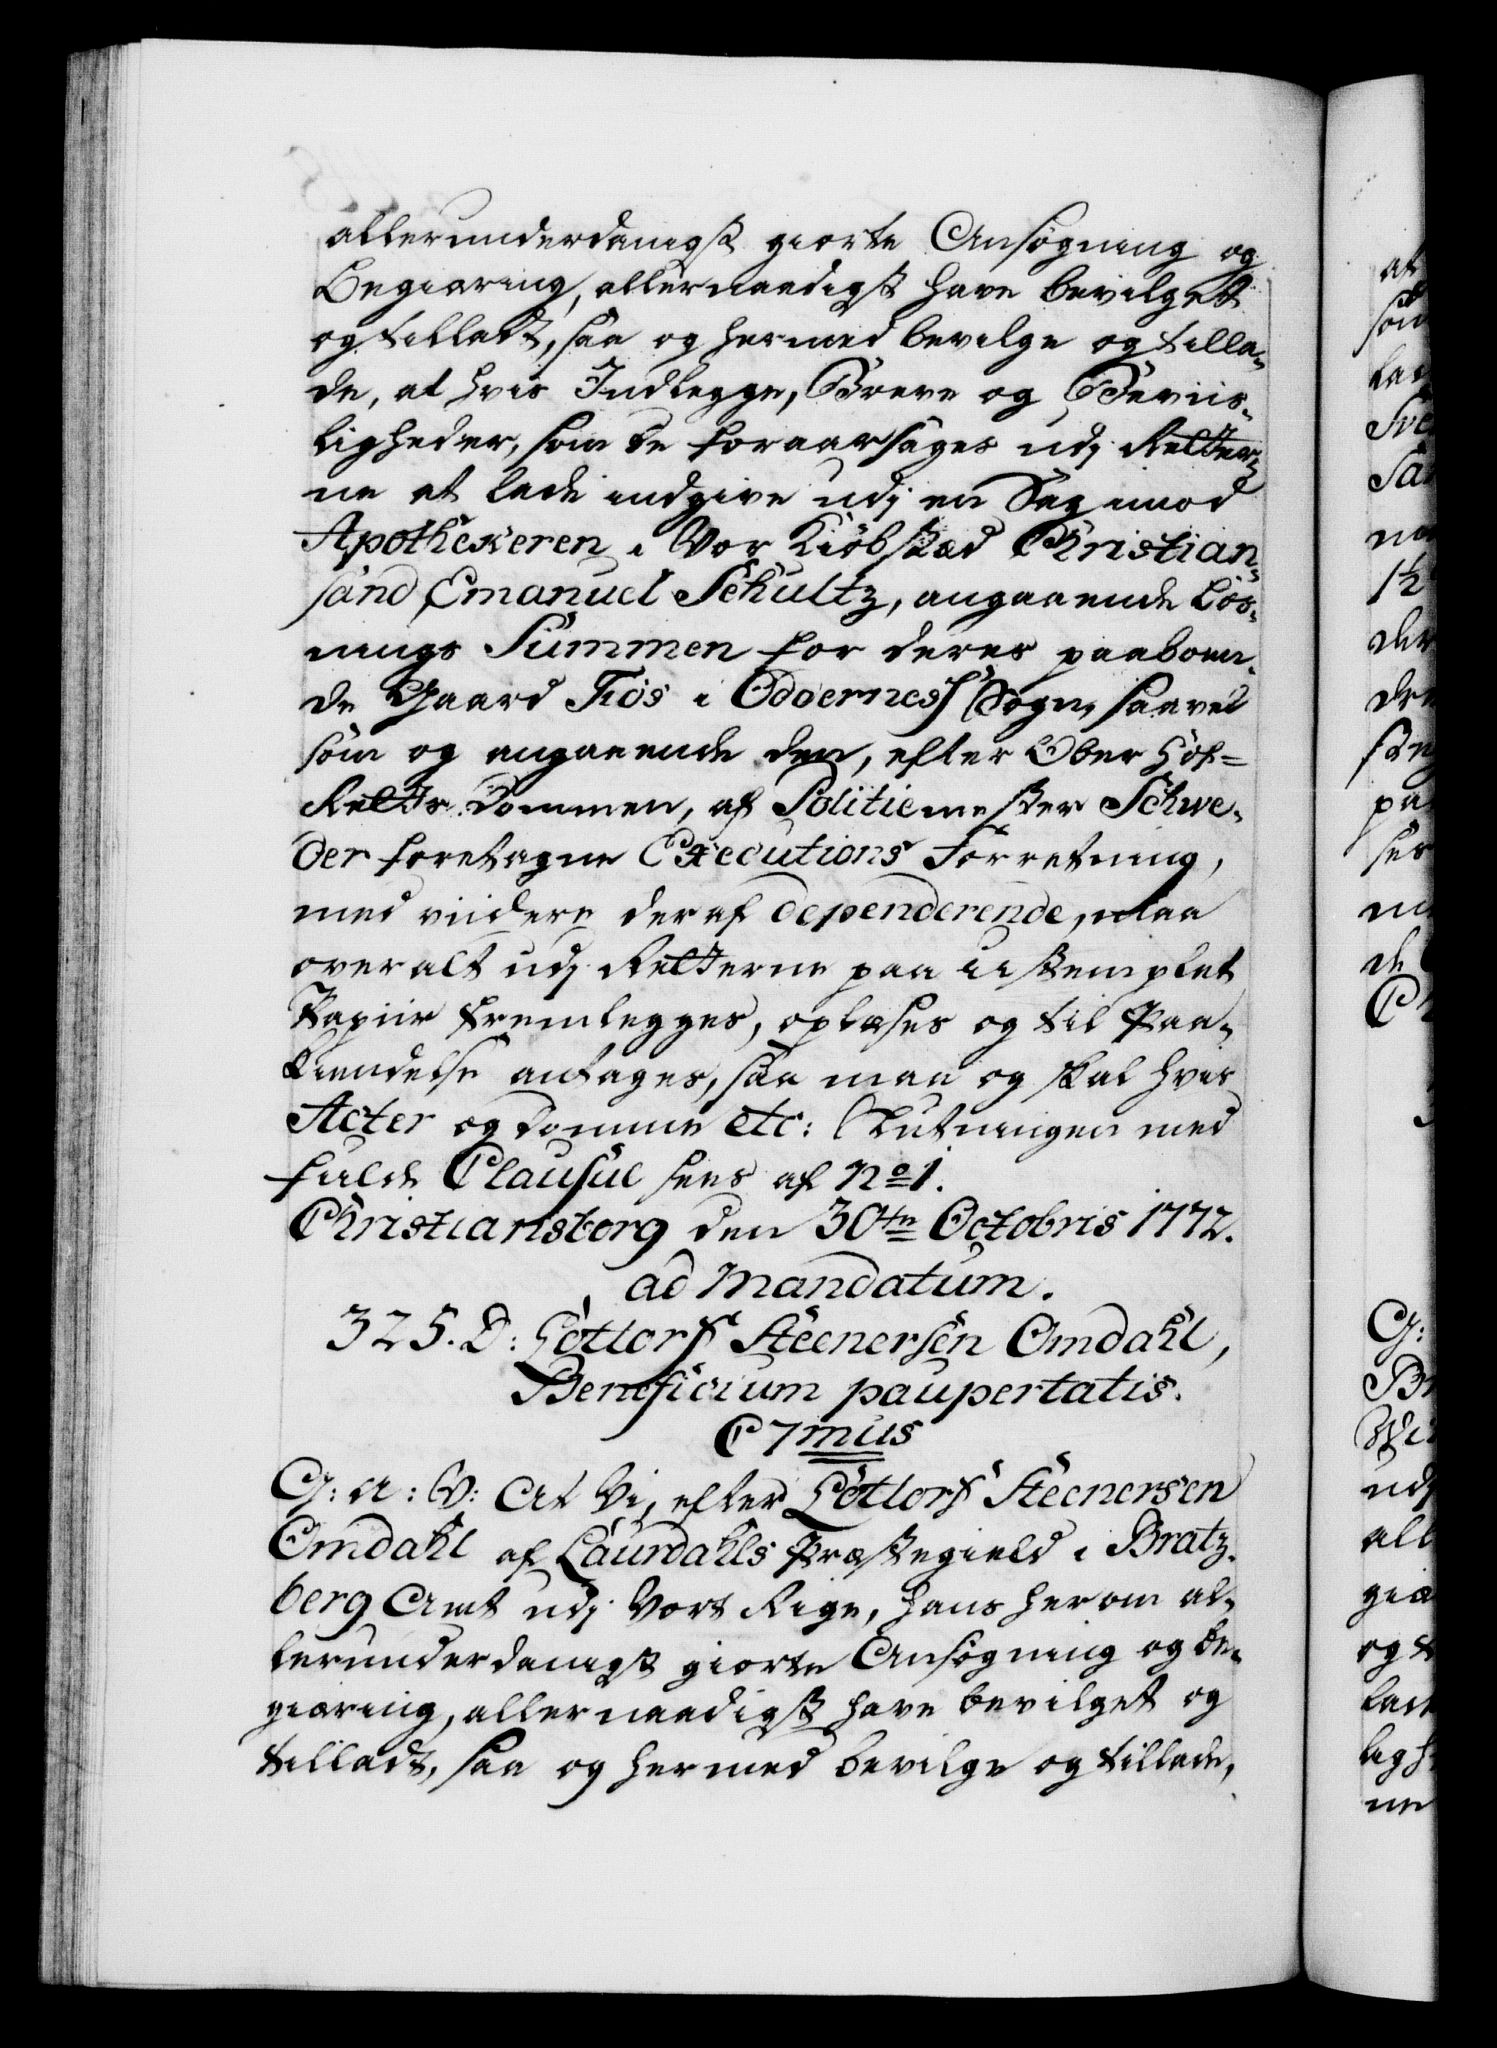 allerunderdanigst giorte Ansøgning og
Begiæring, allernaadigst have bevilget
og tilladt, saa og hermed bevilge og tilla-
de, at hvis Indlegge, Breve og Beviis-
ligheder, som de foraarsages udj Retter-
ne at lade indgive udj en Sag imod
Apothekeren i Vor Kiøbstæd Christian-
sand Emanuel Schultz, angaaende Løs-
nings Summen for deres paaboen-
de Gaard Fiøs i Oddernes Sogn, saavel
som og angaaende den, efter Ober Hof-
Retts Dommen, af Politiemester Schwe-
der foretagne Executions Forretning,
med viidere deraf dependerende, maa
overalt udj Retterne paa ustemplet
Papiir fremlegges, oplæses og til Paa-
kiendelse antages, saa maa og skal hvis
Acter og Domme etc: Slutningen med
fulde Clausul sees af No 1.
Christiansborg den 30te Octobris 1772.
ad Mandatum.
325. D: Gottorf Steenersen Omdahl,
Beneficium paupertatis.
C 7mus
G: A: V: At Vi, efter Gottorf Steenersen
Omdahl af Laurdahls Præstegield i Bratz-
berg Amt udj Vort Rige, hans herom al-
lerunderdanigst giorte Ansøgning og be-
giæring, allernaadigst have bevilget og
tilladt, saa og hermed bevilge og tillade,